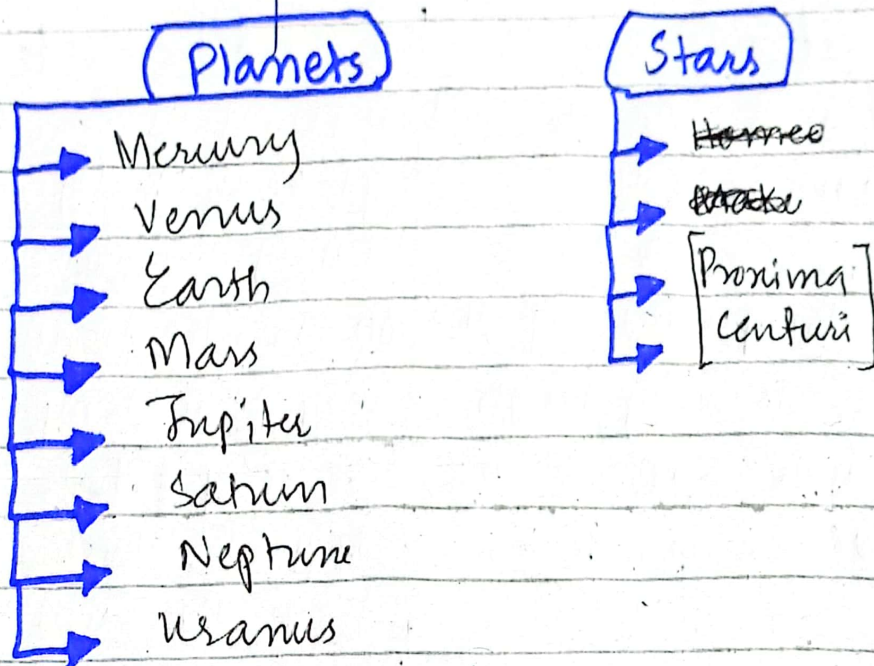 Planets
Mercury
Venus
Earth
Mars
Jupiter
Saturn
Neptune
Uranus
Stars
Proxima
Centuri